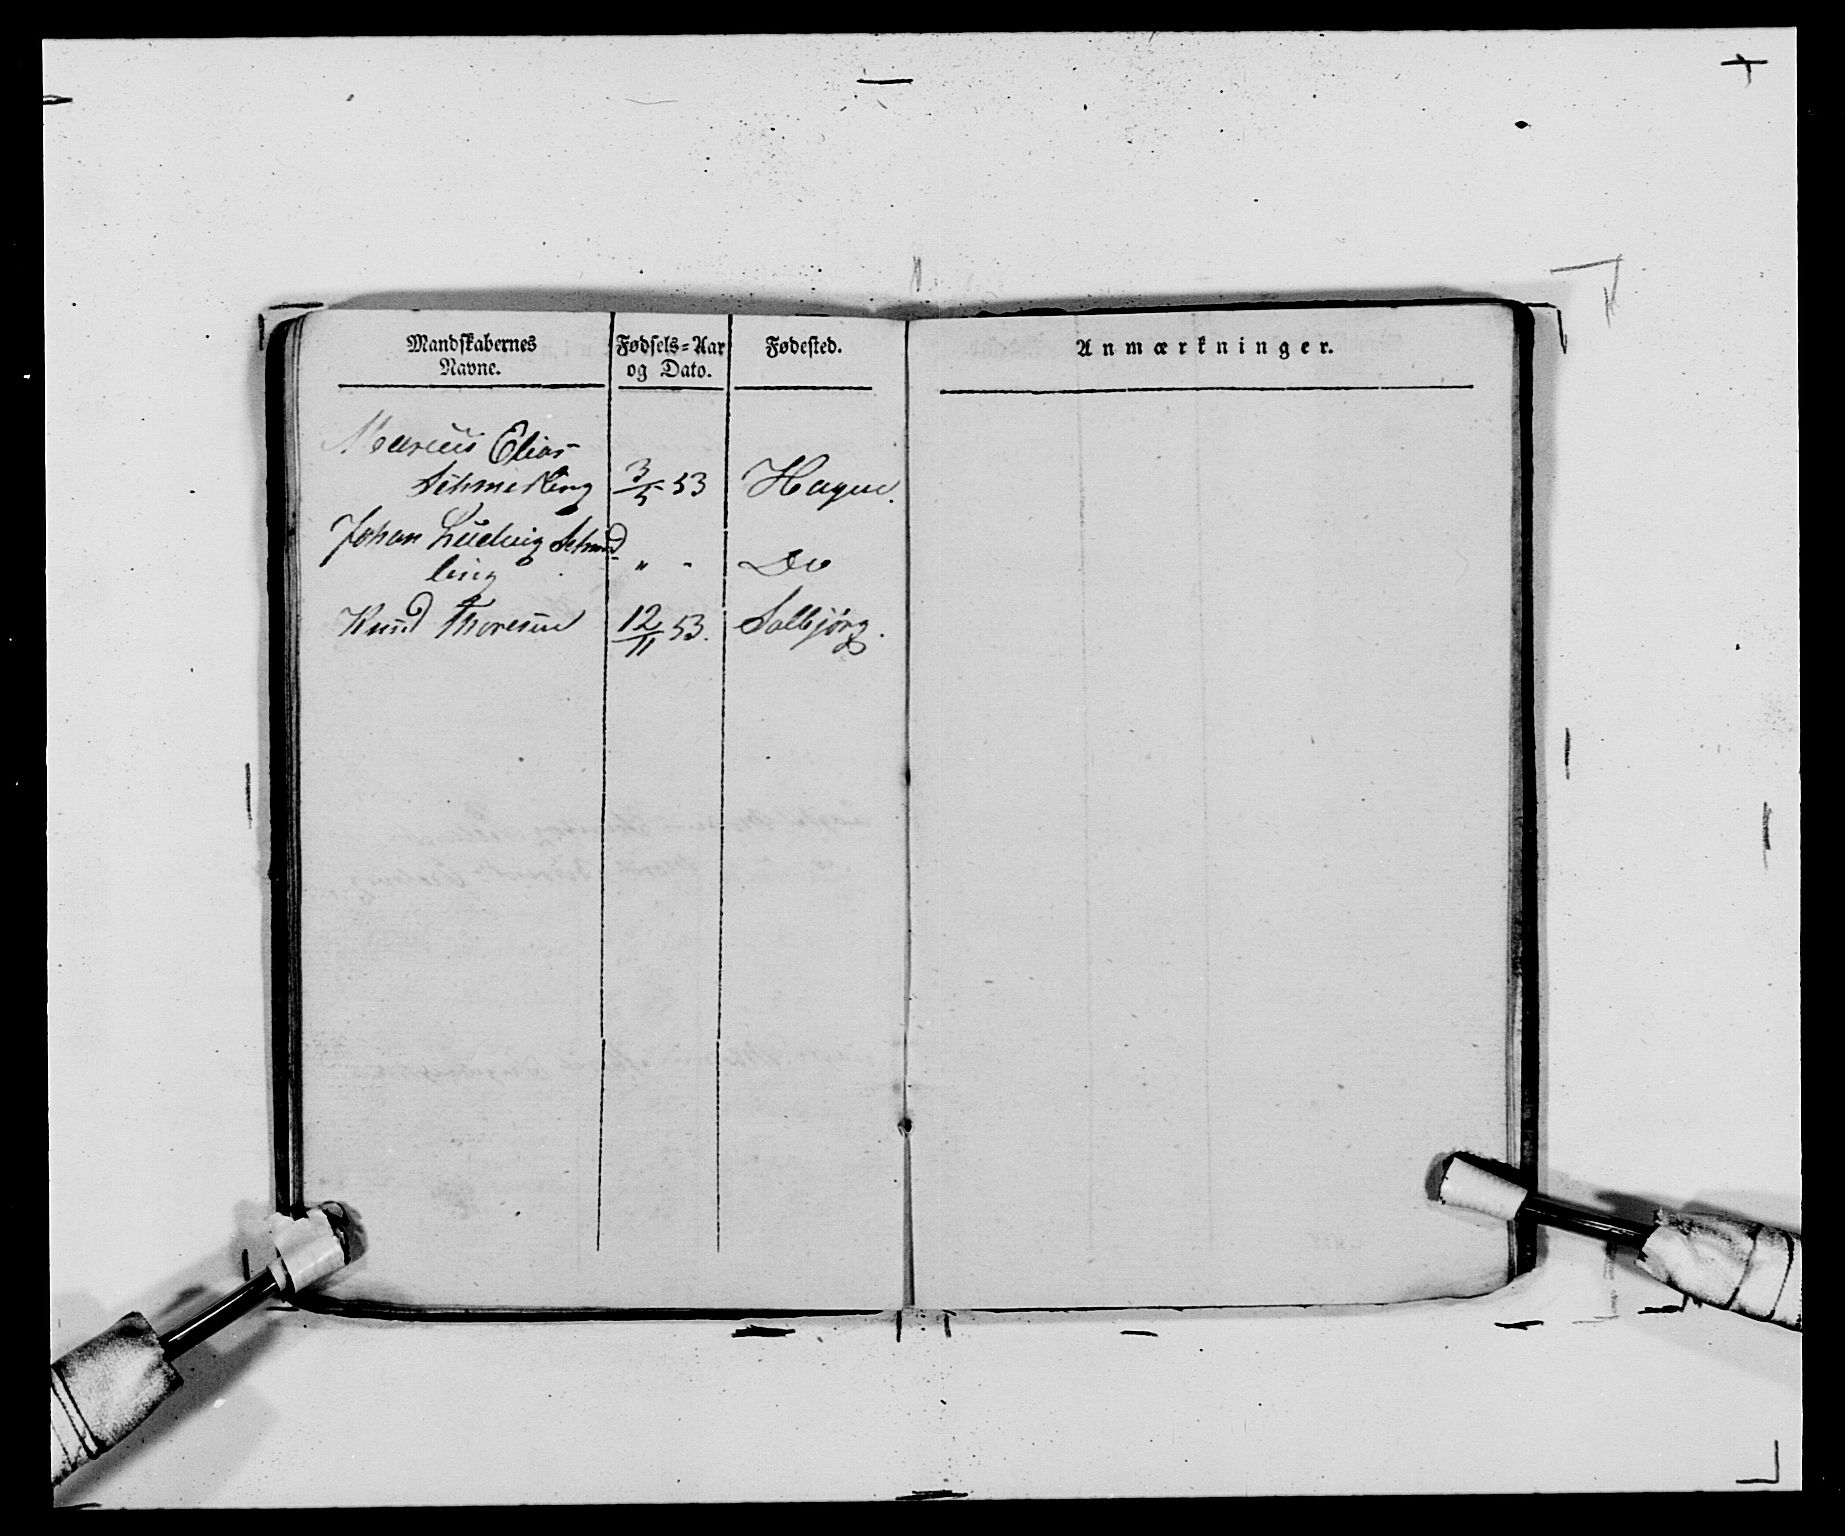 Mandskabernes Navne.
Fødsels-Aar og Dato.
Fødested.
Anmærkninger.
Marcus Elias
Schmeling 3/5 53 Hagen.
Johan Ludvig Schme
ling " " Do
Knud Thoresen 12/11 53. Solbjørg.